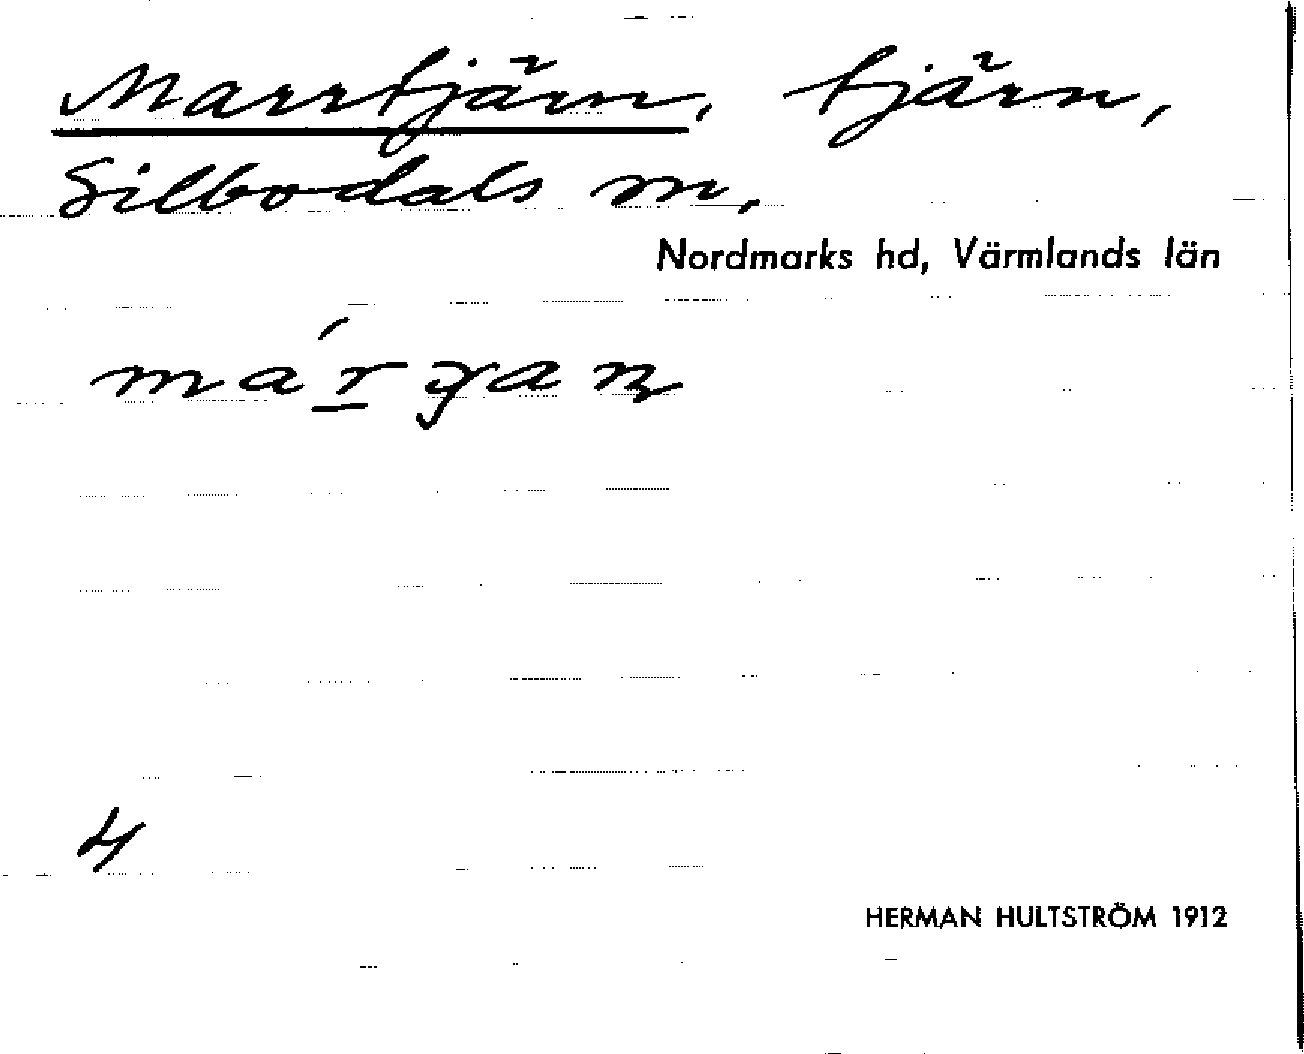 Marrtjärn, tjärn,
Silbodals sn,
Nordmarks hd, Värmlands län
4
HERMAN HULTSTRÖM 1912